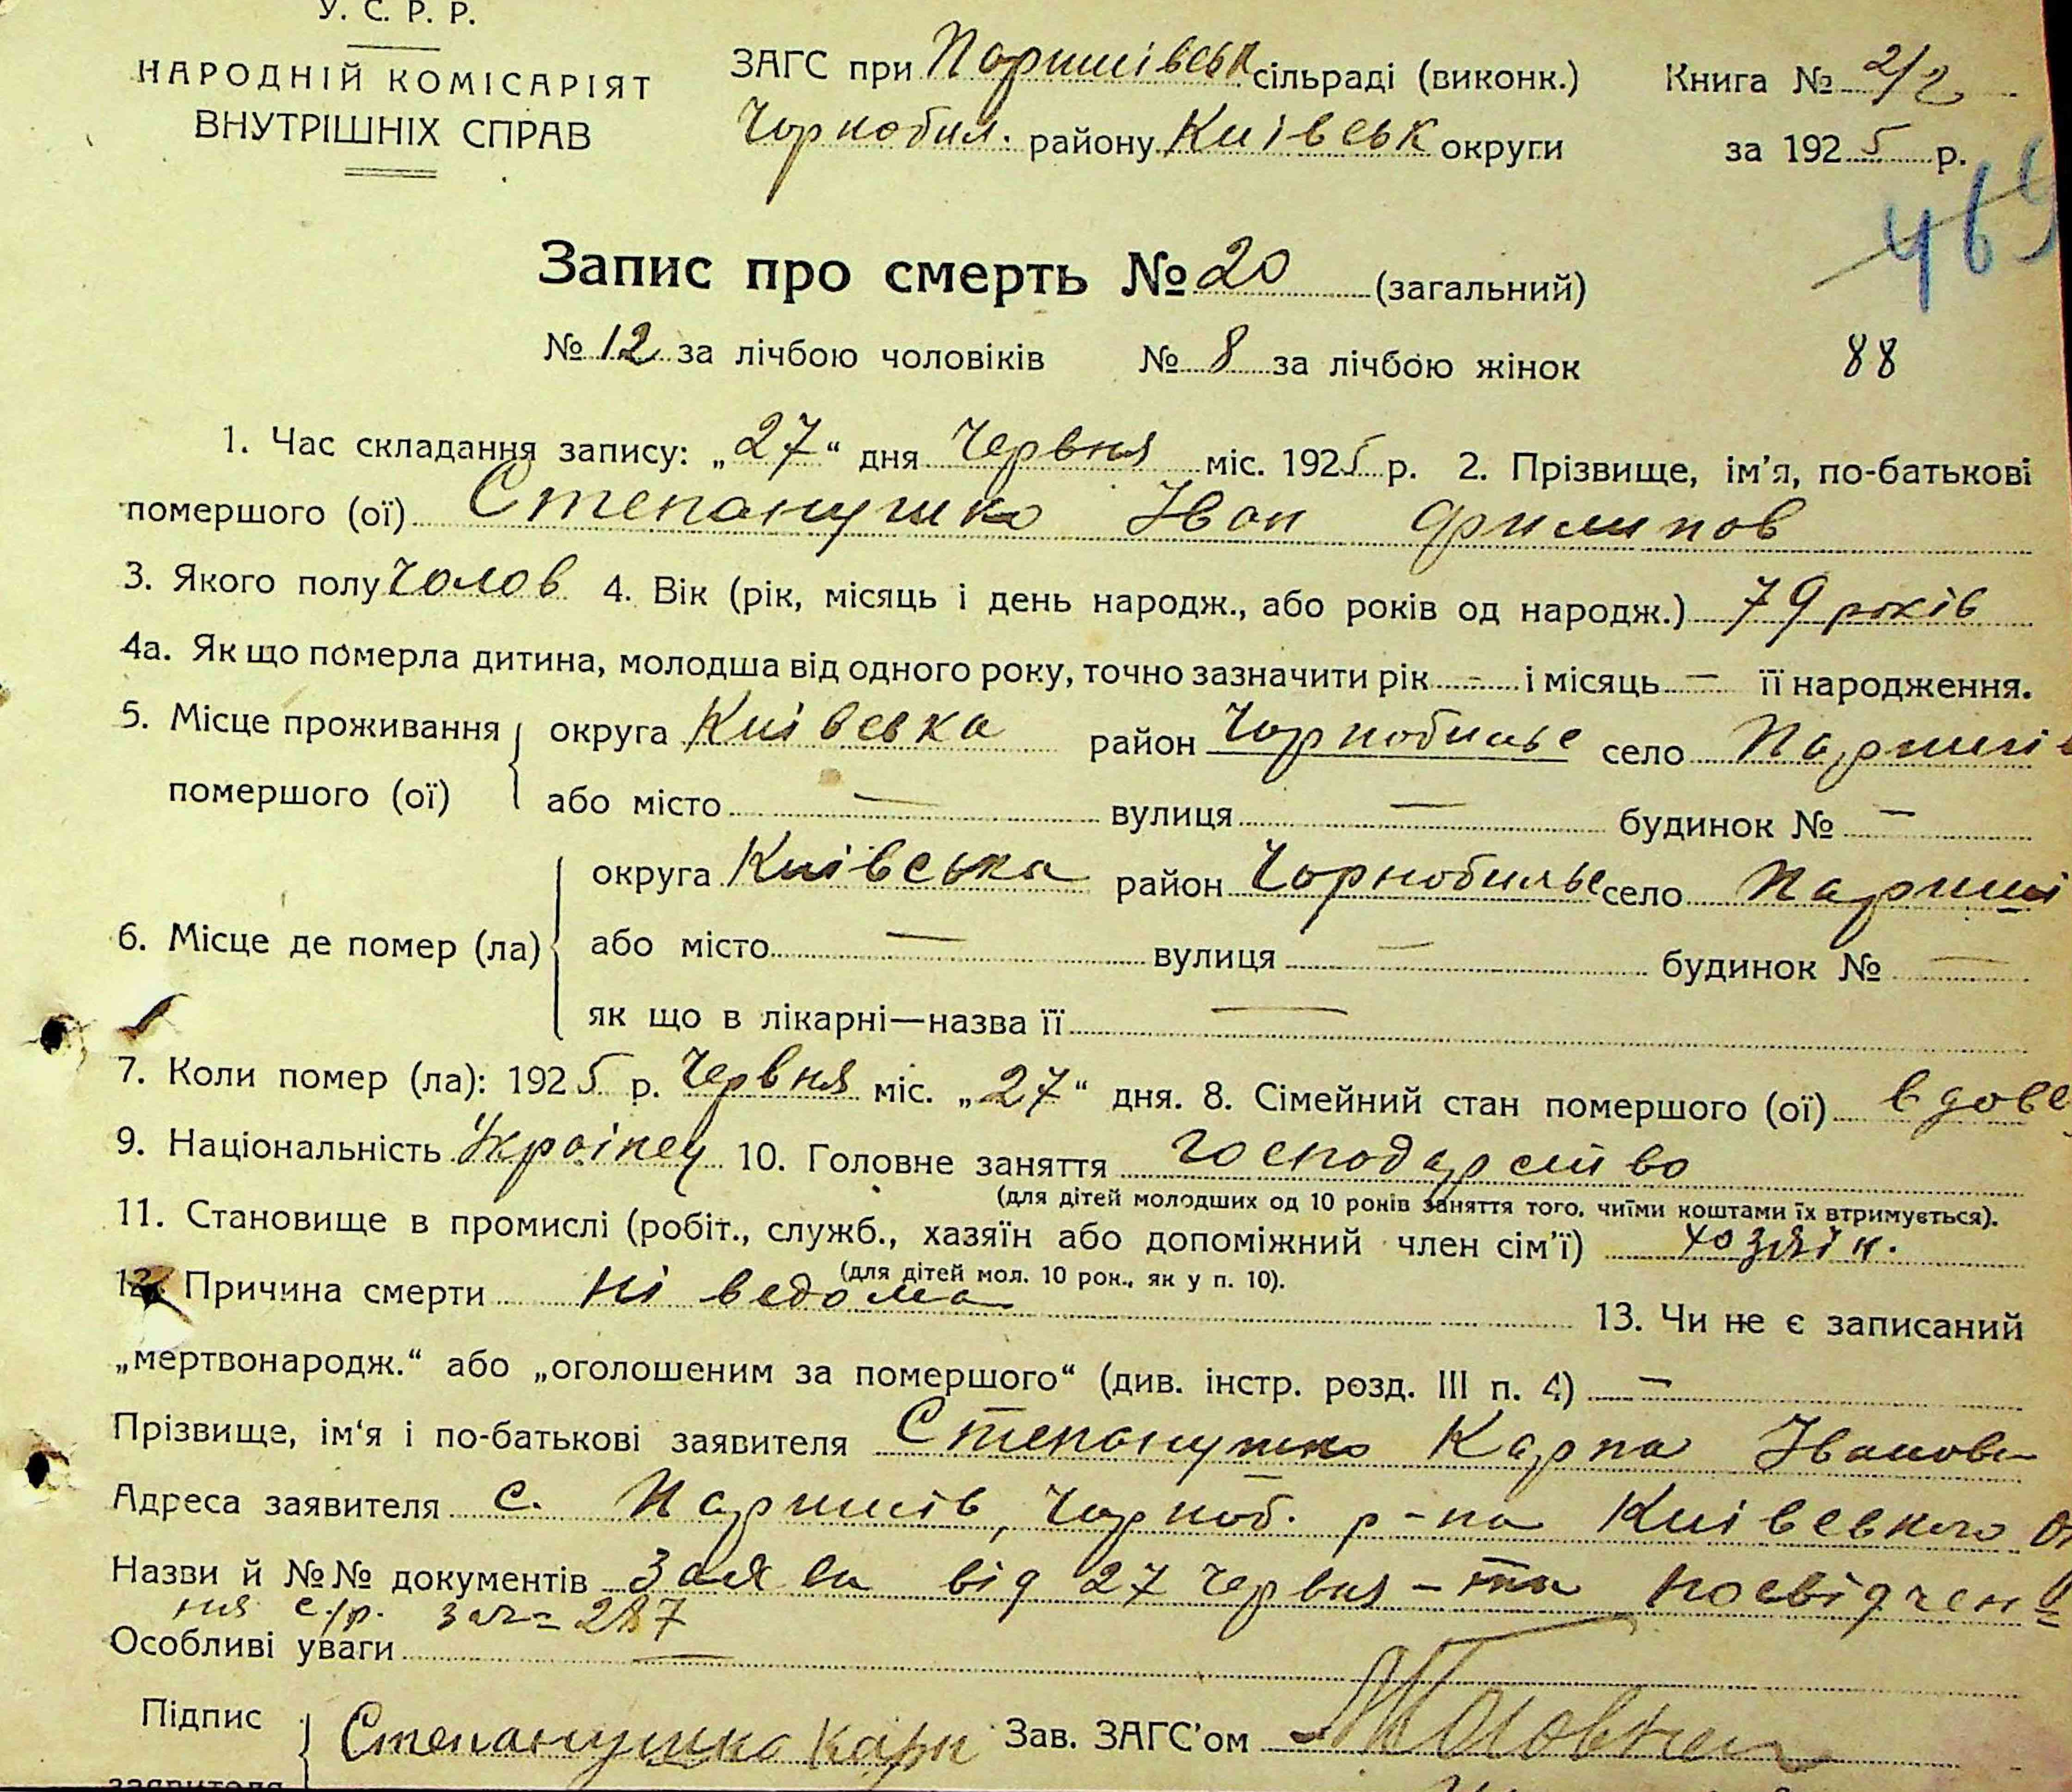 У. С. Р. Р.
НАРОДНІЙ КОМІСАРІЯТ
ВНУТРІШНІХ СПРАВ
ЗАГС при Паришівськ сільраді (виконк.)
Чорнобил. району Київськ округи
Книга № 2/2
за 1925 р.
Запис про смерть № 20 (загальний)
№ 12 за лічбою чоловіків № 8 за лічбою жінок
88
1. Час складання запису: „27“ дня Червня міс. 1925 р. 2. Прізвище, ім’я, по-батькові
помершого (ої) Степанушко Іван Филипов
3. Якого полу Чолов 4. Вік (рік, місяць і день народж., або років од народж.) 79 років
4а. Як що померла дитина, молодша від одного року, точно зазначити рік - і місяць — її народження.
5. Місце проживання округа Київська район Чорнобильс село Паришів
помершого (ої) або місто — вулиця — будинок № —
округа Київська район Чорнобильс село Париші
6. Місце де помер (ла) або місто — вулиця — будинок № —
як що в лікарні—назва її —
7. Коли помер (ла): 1925 р. Червня міс. „27“ дня. 8. Сімейний стан помершого (ої) вдове
9. Національність Українец 10. Головне заняття господарство
(для дітей молодших од 10 років заняття того, чиїми коштами їх втримується).
11. Становище в промислі (робіт., служб., хазяїн або допоміжний член сім’ї) хозяїн.
(для дітей мол. 10 рок., як у п. 10).
12. Причина смерти ні ведома 13. Чи не є записаний
„мертвонародж.“ або „оголошеним за помершого“ (див. інстр. розд. III п. 4) —
Прізвище, ім‘я і по-батькові заявителя Степанушко Карпа Іванов
Адреса заявителя с. Паришів, Чорноб. р-на Київського
Назви й №№ документів Заява від 27 Червня - та посвідчен
ня с/р. за № 287
Особливі уваги —
Підпис Степанушко Карп Зав. ЗАГС’ом
заявителя